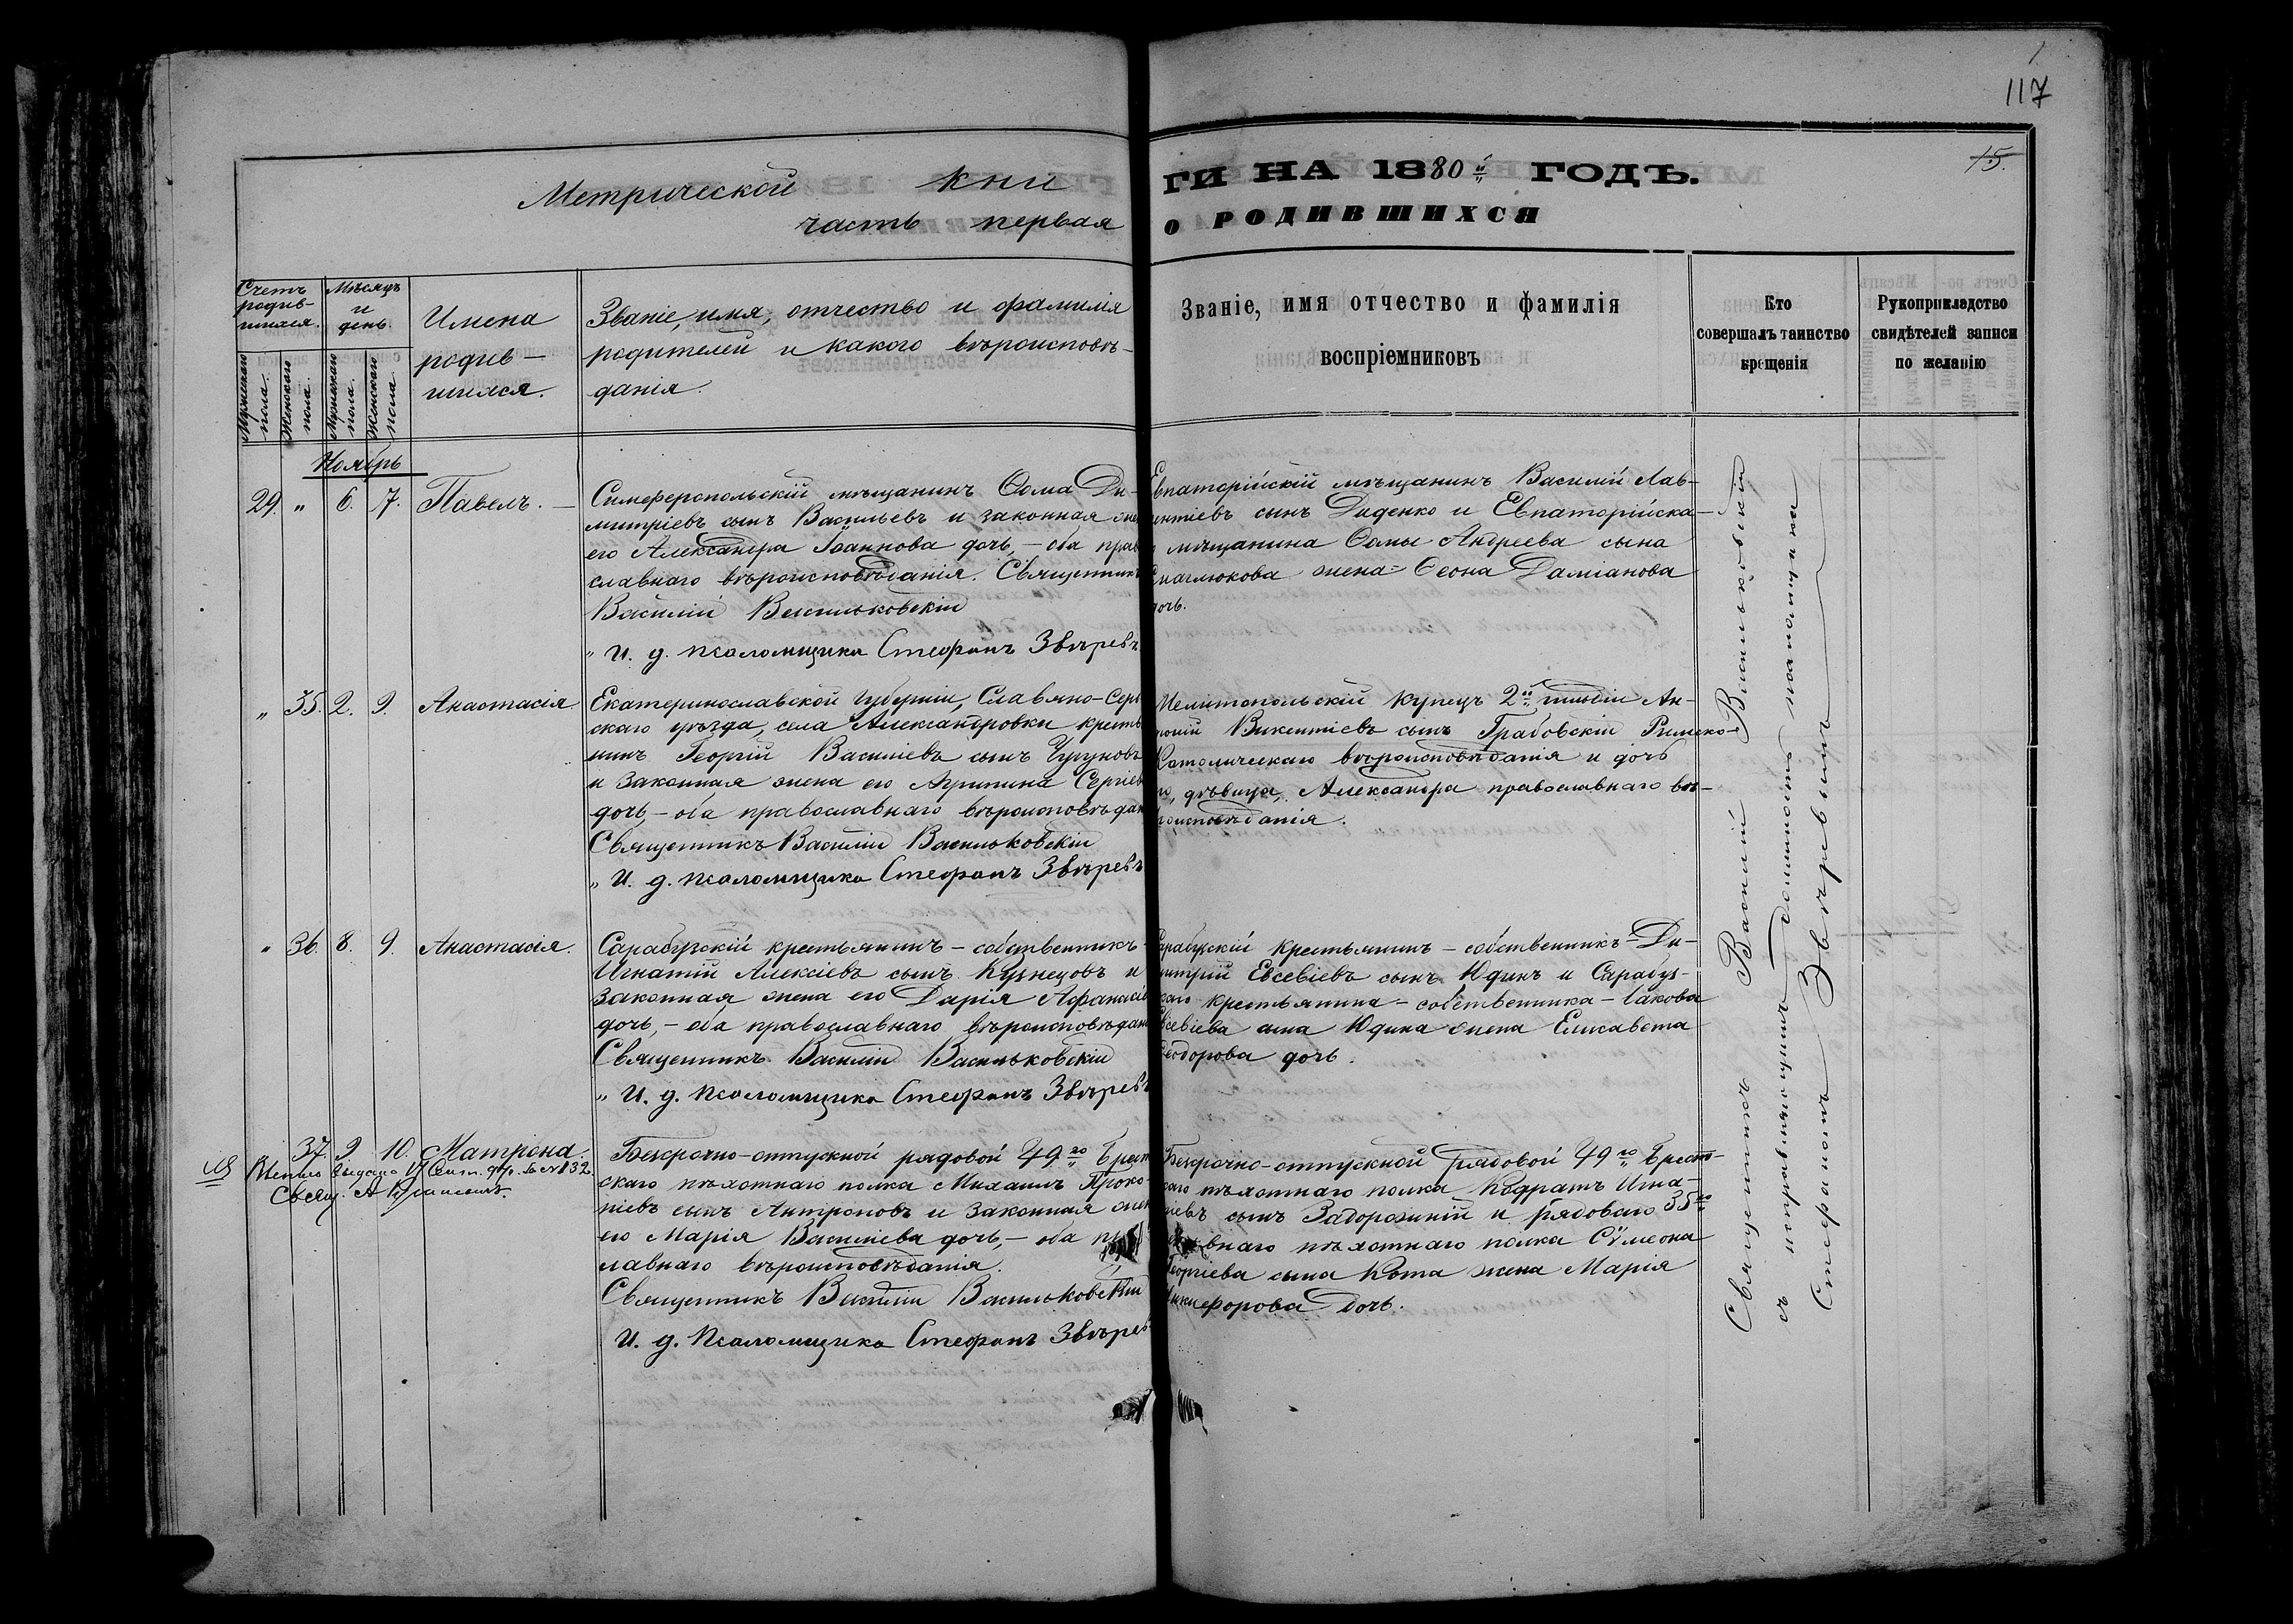 117
15.
Метрической кни
часть первая
ГИ НА 1880й ГОДЪ.
О РОДИВШИХСЯ
Счетъ родив-
шихся.
Мужескаго пола.
Женскаго пола.
Мѣсяцъ и день.
Мужескаго пола.
Женскаго пола.
Имена
родив-
шихся.
Званіе, имя, отчество и фамилія
родителей и какого вѣроисповѣ-
данія.
Званіе, имя отчество и фамилія
воспріемниковъ
Кто
совершалъ таинство
крещенія
Рукоприкладство
свидѣтелей записи
по желанію
Ноябрь
29. „ 6. 7. Павелъ. —
Симферопольскій мѣщанинъ Ѳома Ди-
митріевъ сынъ Васильевъ и законная жен
его Александра Іоаннова дочь, – оба прав
славнаго вѣроисповѣданія. Священникъ
Василій Васильковскій
„ И. д. псаломщика Стефанъ Звѣревъ
Евпаторійскій мѣщанинъ Василій Лав-
рентіевъ сынъ Диденко и Евпаторійска-
мѣщанина Ѳомы Андреева сына
жена Ѳеона Даміанова
дочь.
„ 35. 2. 9. Анастасія
Екатеринославской Губерніи, Славяно-Серб
скаго уѣзда, села Александровки кресть
нинъ Георгій Василіевъ сынъ Чугуновъ
и законная жена его Агрипина Сергіев
дочь, – оба православнаго вѣроисповѣдан
Священникъ Василій Васильковскій
„ И. д. псаломщика Стефанъ Звѣревъ
Мелитопольскій купецъ 2й гильдіи Ан-
тоній Викентіевъ сынъ Грабовскій Римско-
Католическаго вѣроисповѣданія и дочь
его, дѣвица, Александра православнаго вѣ-
роисповѣданія.
„ 36. 8. 9. Анастасія.
Сарабузскій крестьянинъ – собственникъ
Игнатій Алексіевъ сынъ Кузнецовъ и
законная жена его Дарія Афанасіев
дочь, – оба православнаго вѣроисповѣдан
Священникъ Василій Васильковскій
„ И. д. псаломщика Стефанъ Звѣревъ
Сарабузскій крестьянинъ – собственникъ – Ди-
митрій Евсевіевъ сынъ Юдинъ и Сарабуз-
скаго крестьянина – собственника – Іакова
Евсевіева сына Юдина жена Елисавета
Ѳеодорова дочь.
37. 9. 10. Матрона.
Свящ. А
Безсрочно-отпускной рядовой 49го Брест
скаго пѣхотнаго полка Михаилъ Проко-
піевъ сынъ Антроповъ и законная жен
его Марія Василіева дочь, – оба пр
лавнаго вѣроисповѣданія.
Священникъ Василій Васильковскій
И. д. Псаломщика Стефанъ Звѣрев
Безсрочно-отпускной рядовой 49го Брест-
скаго пѣхотнаго полка Кодратъ Игна-
тіевъ сынъ Задорожній и рядоваго 35го
внаго пѣхотнаго полка Сѵмеона
Георгіева сына Кота жена Марія
Никифорова дочь.
Священникъ Василій Васильковскій
съ исправляющимъ должность псаломщика
Стефаномъ Звѣревымъ